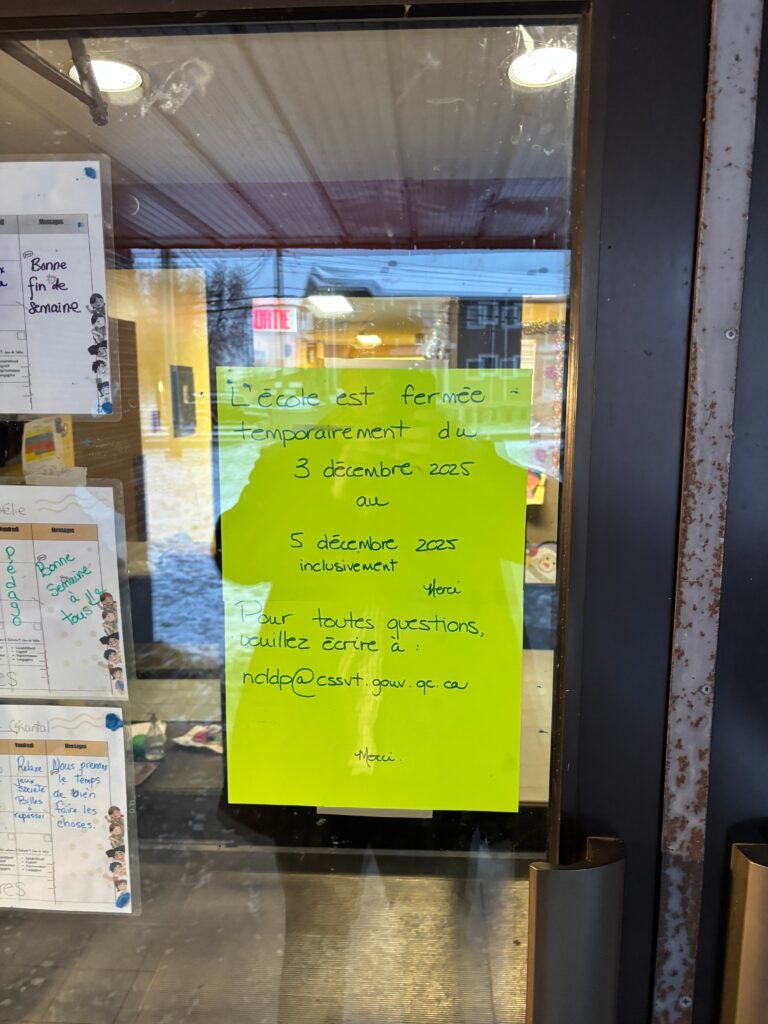 Messages
Bonne
fin de
semaine
SORTIE
L'école est fermée
temporairement du
3 décembre 2025
au
5 décembre 2025
inclusivement
Merci
Pour toutes questions,
veuillez écrire à :
ncldp@cssvt.gouv.qc.ca
Merci.
Vendredi
Messages
Pédago
Bonne
semaine
à
tous
Chantal
Vendredi
Messages
Relaxe
jeux
société
Billes
à
repasser
Nous prenons
le temps
de bien
faire les
choses.